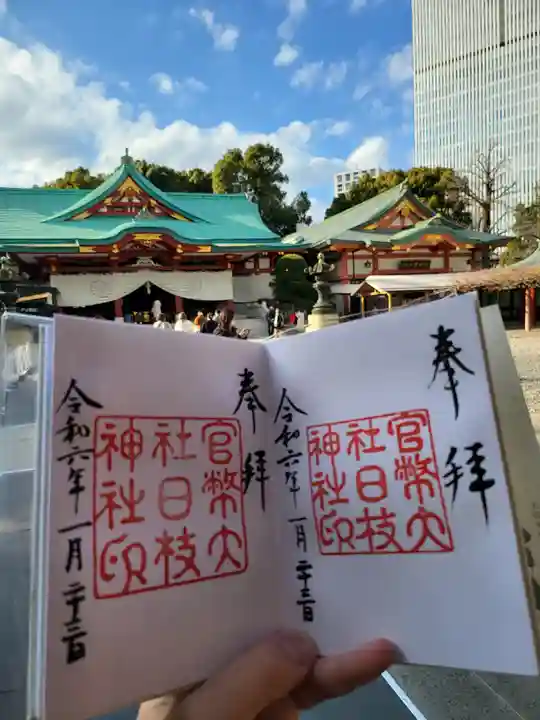 奉拝
官幣大
社日枝
神社印
令和六年一月二十三日
奉拝
官幣大
社日枝
神社印
令和六年一月二十三日